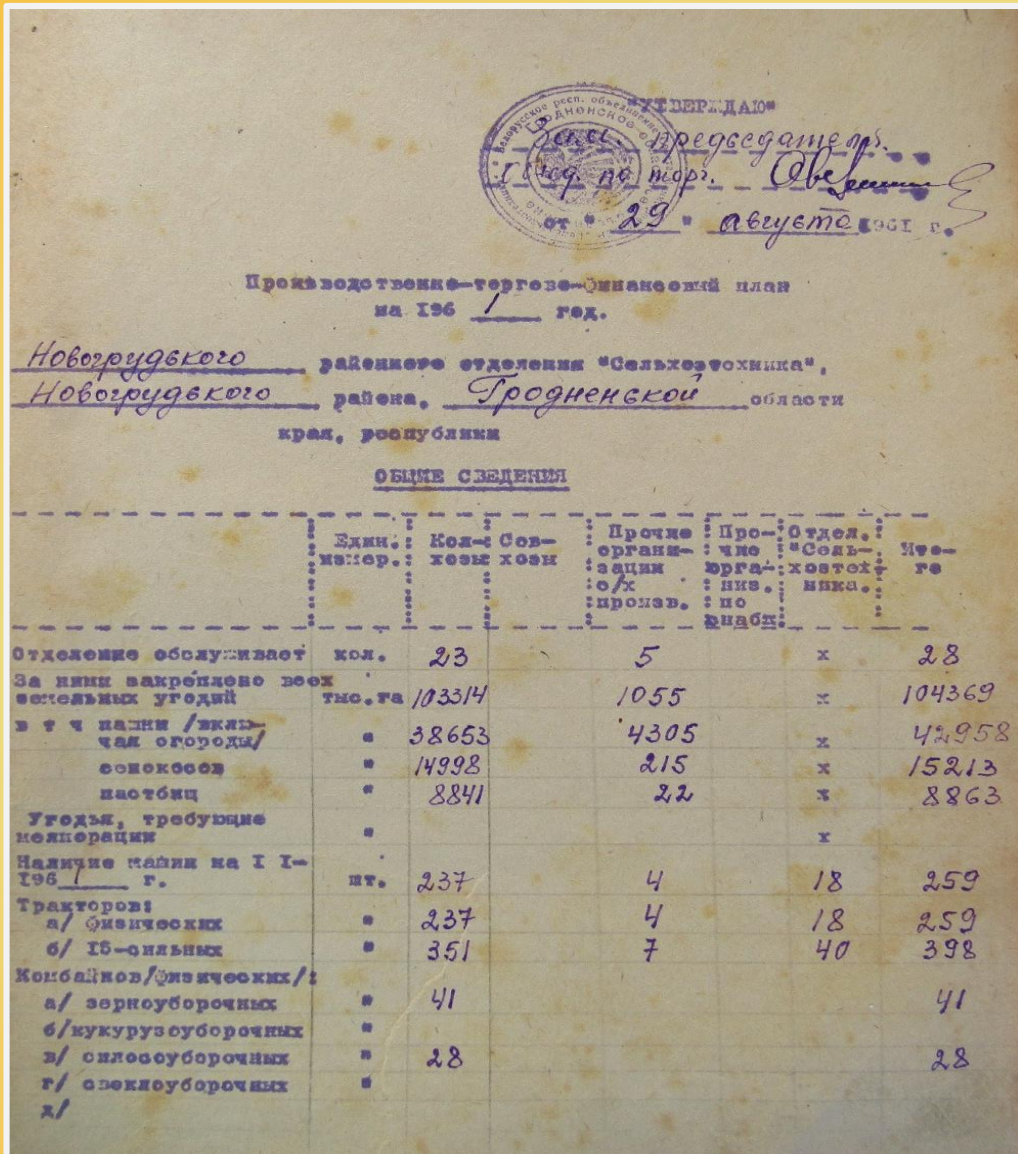 Белорусское респ. объединение
Гродненское
"УТВЕРЖДАЮ"
Зам. председателя
по торг.
от " 29 " августа 1961 г.
Производственно-торгово-финансовый план
на I96 1 год.
Новогрудского районного отделения "Сельхозтехника",
Новогрудского района, Гродненской области
края, республики
ОБЩИЕ СВЕДЕНИЯ
Един. измер. Кол-хозы Сов-хозы Прочие органи-зации с/х произв. Про-чие орга-низ. по снабж. Отдел. "Сель-хозтех-ника. Ито-го
Отделение обслуживает кол. 23 5 х 28
За ними закреплено всех
земельных угодий тыс.га 103314 1055 х 104369
в т ч пашни /вклю-
чая огороды/ " 38653 4305 х 42958
сенокосов " 14998 215 х 15213
пастбищ " 8841 22 х 8863
Угодья, требующие
мелиорации " х
Наличие машин на I I-
I96 1 г. шт. 237 4 18 259
Тракторов:
а/ физических " 237 4 18 259
б/ I5-сильных " 351 7 40 398
Комбайнов/физических/:
а/ зерноуборочных " 41 41
б/кукурузоуборочных "
в/ силосоуборочных " 28 28
г/ свеклоуборочных "
д/